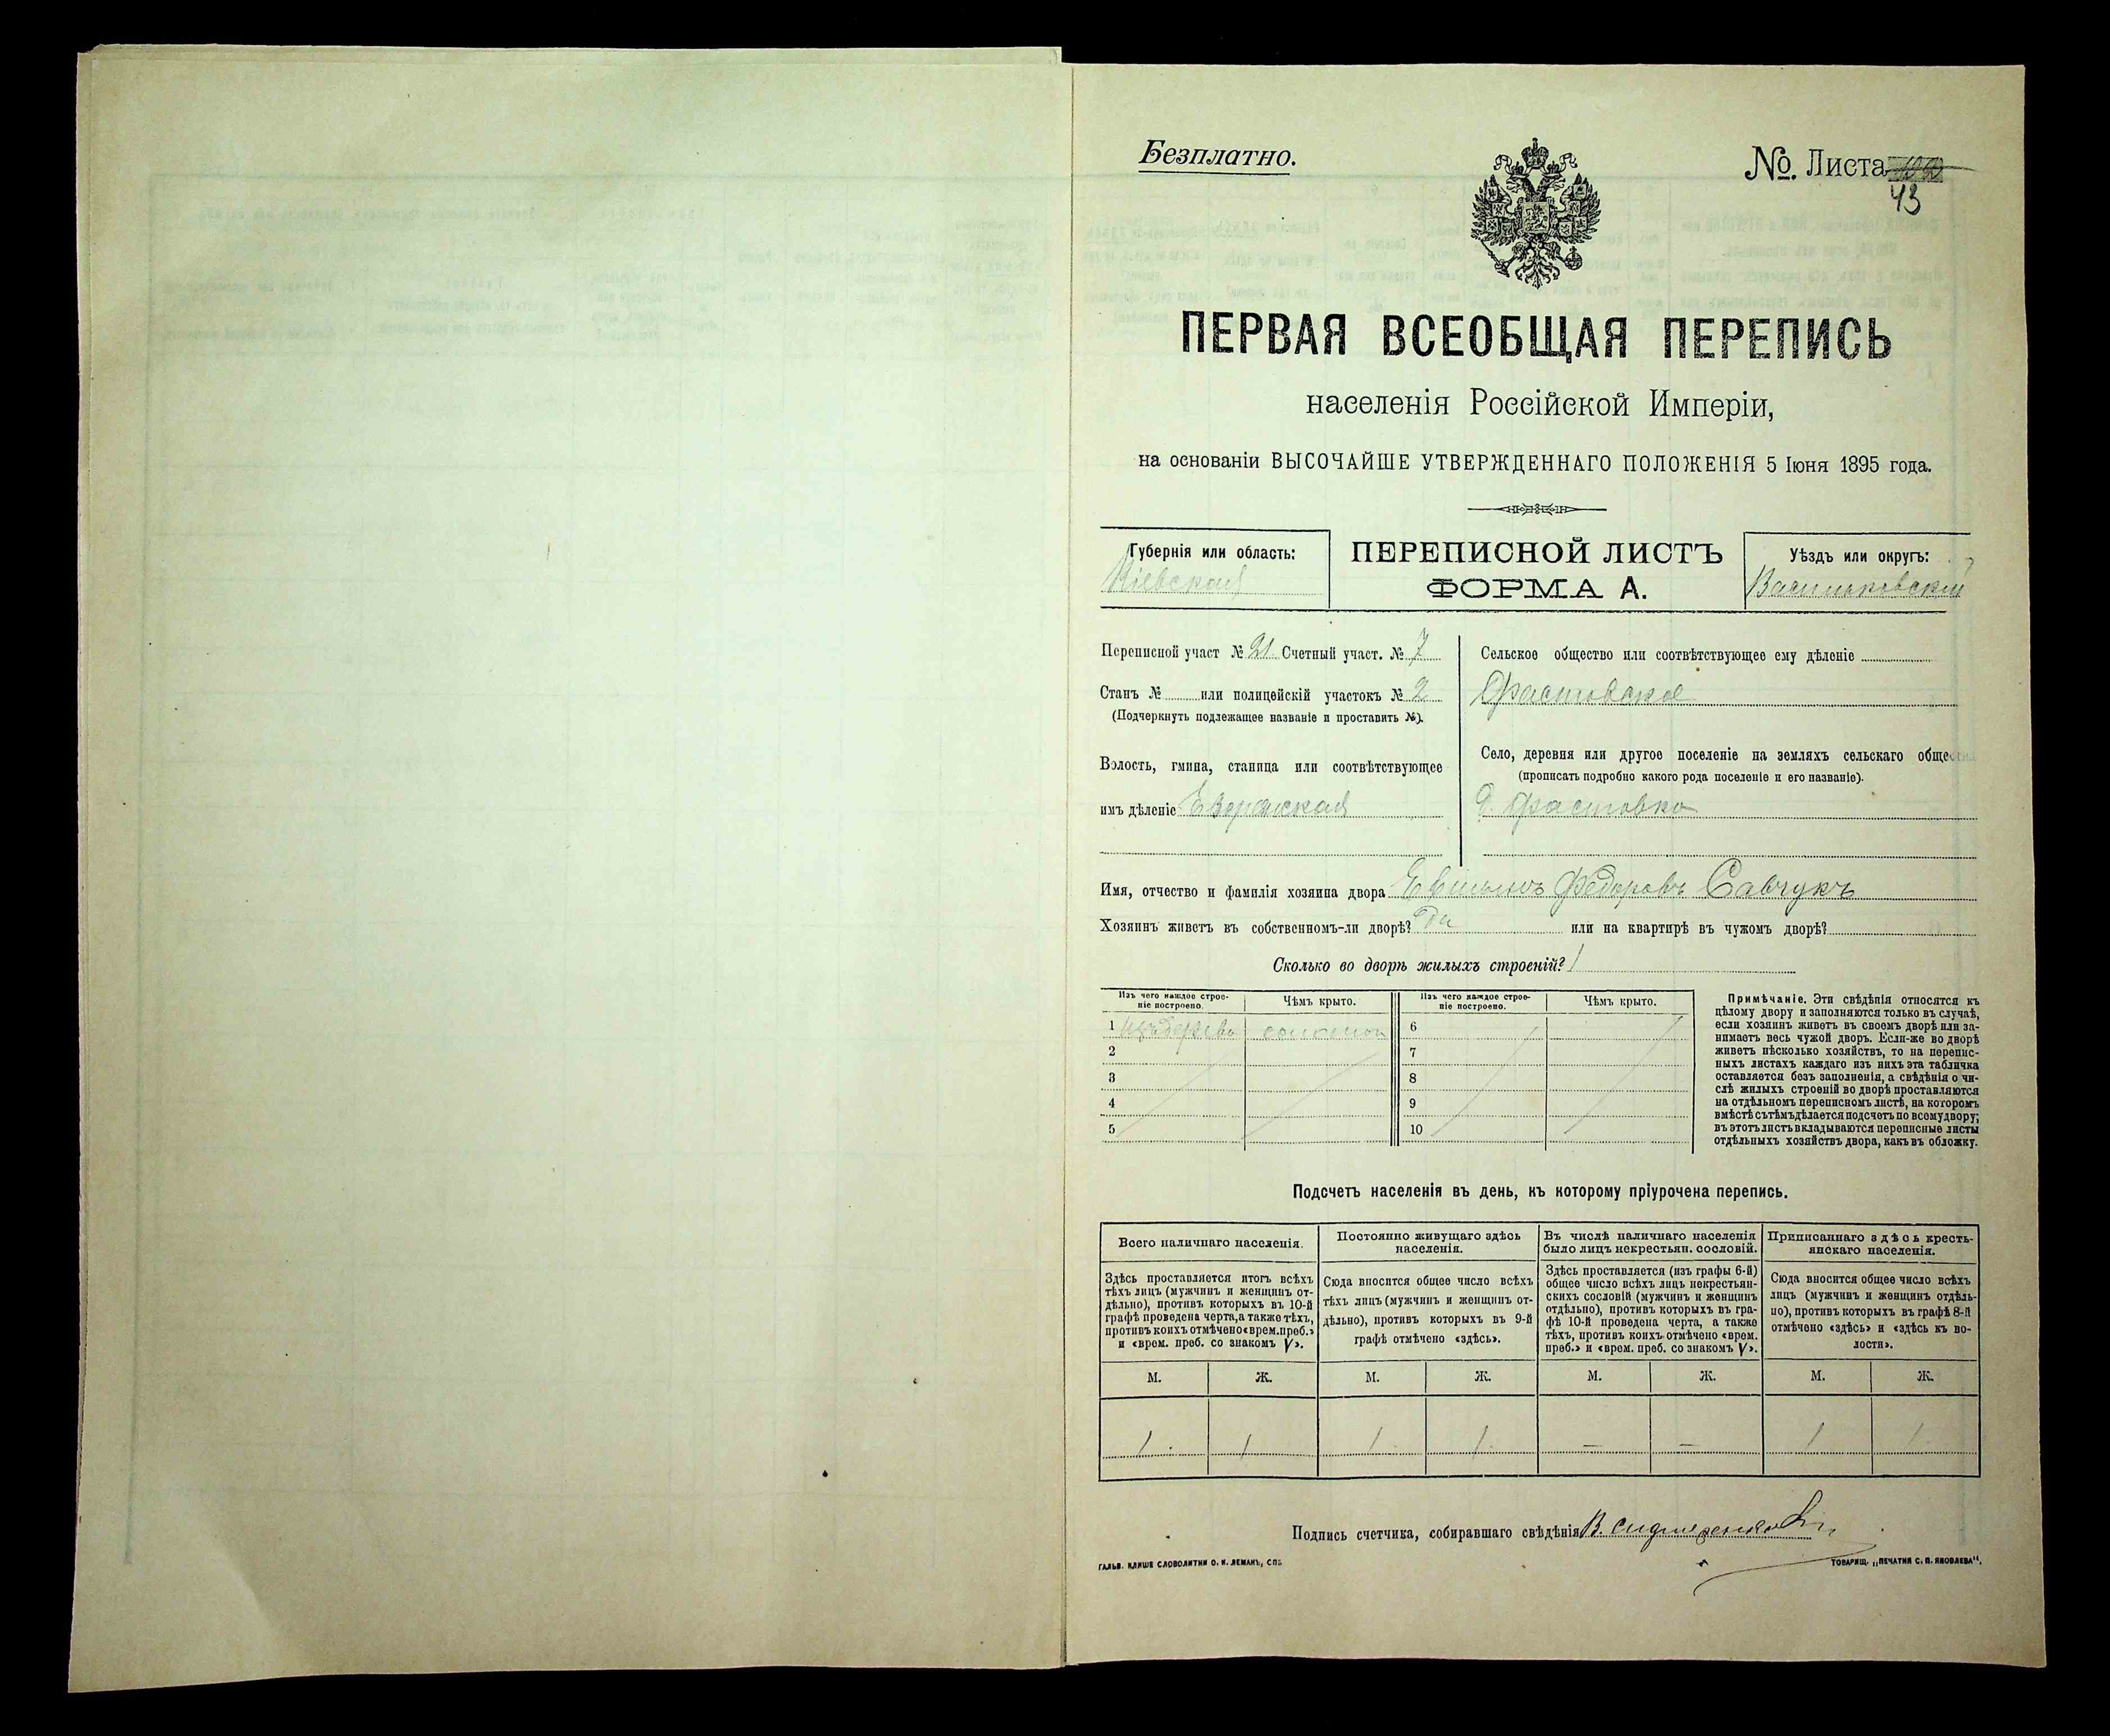 Безплатно.
№. Листа
43
ПЕРВАЯ ВСЕОБЩАЯ ПЕРЕПИСЬ
населенія Россійской Имперіи,
на основаніи ВЫСОЧАЙШЕ УТВЕРЖДЕННАГО ПОЛОЖЕНІЯ 5 Іюня 1895 года.
Губернія или область:
Кіевская
ПЕРЕПИСНОЙ ЛИСТЪ
ФОРМА А.
Уѣздъ или округъ:
Васильковскій
Переписной участ № 21 Счетный участ. № 7
Станъ № или полицейскій участокъ № 2
(Подчеркнуть подлежащее названіе и проставить №).
Волость, гмина, станица или соотвѣтствующее
имъ дѣленіе
Сельское общество или соотвѣтствующее ему дѣленіе
Фастовское
Село, деревня или другое поселеніе на земляхъ сельскаго общества
(прописать подробно какого рода поселеніе и его названіе).
д. Фастовка
Имя, отчество и фамилія хозяина двора Федоровъ Савчукъ
Хозяинъ живетъ въ собственномъ-ли дворѣ? Да или на квартирѣ въ чужомъ дворѣ?
Сколько во дворѣ жилыхъ строеній? 1
Изъ чего каждое строе-
ніе построено.
Чѣмъ крыто.
Изъ чего каждое строе-
ніе построено.
Чѣмъ крыто.
1 изъ дерева соломой 6
2 7
3 8
4 9
5 10
Примѣчаніе. Эти свѣдѣнія относятся къ
цѣлому двору и заполняются только въ случаѣ,
если хозяинъ живетъ въ своемъ дворѣ или за-
нимаетъ весь чужой дворъ. Если-же во дворѣ
живетъ нѣсколько хозяйствъ, то на перепис-
ныхъ листахъ каждаго изъ нихъ эта табличка
оставляется безъ заполненія, а свѣдѣнія о чи-
слѣ жилыхъ строеній во дворѣ проставляются
на отдѣльномъ переписномъ листѣ, на которомъ
вмѣстѣ съ тѣмъ дѣлается подсчетъ по всему двору;
въ этотъ листъ вкладываются переписные листы
отдѣльныхъ хозяйствъ двора, какъ въ обложку.
Подсчетъ населенія въ день, къ которому пріурочена перепись.
Всего наличнаго населенія.
Здѣсь проставляется итогъ всѣхъ
тѣхъ лицъ (мужчинъ и женщинъ от-
дѣльно), противъ которыхъ въ 10-й
графѣ проведена черта, а также тѣхъ,
противъ коихъ отмѣчено «врем. преб.»
и «врем. преб. со знакомъ V».
Постоянно живущаго здѣсь
населенія.
Сюда вносится общее число всѣхъ
тѣхъ лицъ (мужчинъ и женщинъ от-
дѣльно), противъ которыхъ въ 9-й
графѣ отмѣчено «здѣсь».
Въ числѣ наличнаго населенія
было лицъ некрестьян. сословій.
Здѣсь проставляется (изъ графы 6-й)
общее число всѣхъ лицъ некрестьян-
скихъ сословій (мужчинъ и женщинъ
отдѣльно), противъ которыхъ въ гра-
фѣ 10-й проведена черта, а также
тѣхъ, противъ коихъ отмѣчено «врем.
преб.» и «врем. преб. со знакомъ V».
Приписаннаго здѣсь кресть-
янскаго населенія.
Сюда вносится общее число всѣхъ
лицъ (мужчинъ и женщинъ отдѣль-
но), противъ которыхъ въ графѣ 8-й
отмѣчено «здѣсь» и «здѣсь къ во-
лости».
М. Ж. М. Ж. М. Ж. М. Ж.
1 1 1 1 — — 1 1
Подпись счетчика, собиравшаго свѣдѣнія В.
ГАЛЬВ. КЛИШЕ СЛОВОЛИТНИ О. И. ЛЕМАНЪ, СПБ
ТОВАРИЩ. „ПЕЧАТНЯ С. П. ЯКОВЛЕВА“.